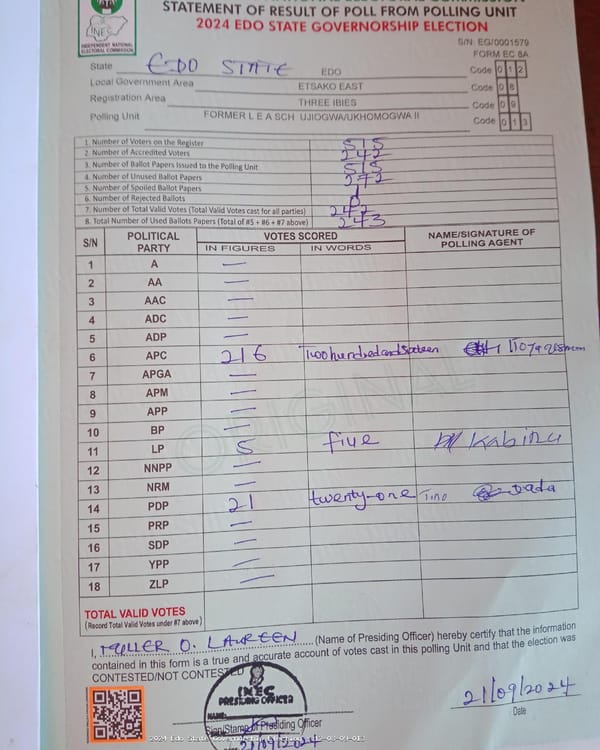 STATEMENT OF RESULT OF POLL FROM POLLING UNIT
2024 EDO STATE GOVERNORSHIP ELECTION
INEC
INDEPENDENT NATIONAL ELECTORAL COMMISSION
S/N: EG/0001579
FORM EC 8A
State EDO STATE EDO Code 0 1 2
Local Government Area ETSAKO EAST Code 0 8
Registration Area THREE IBIES Code 0 9
Polling Unit FORMER L E A SCH UJIOGWA/UKHOMOGWA II Code 0 1 3
1. Number of Voters on the Register 515
2. Number of Accredited Voters 242
3. Number of Ballot Papers Issued to the Polling Unit 515
4. Number of Unused Ballot Papers 272
5. Number of Spoiled Ballot Papers 1
6. Number of Rejected Ballots
7. Number of Total Valid Votes (Total Valid Votes cast for all parties) 242
8. Total Number of Used Ballots Papers (Total of #5 + #6 + #7 above) 243
S/N POLITICAL PARTY VOTES SCORED NAME/SIGNATURE OF POLLING AGENT
IN FIGURES IN WORDS
1 A —
2 AA —
3 AAC —
4 ADC —
5 ADP —
6 APC 216 Two hundred and sixteen
7 APGA —
8 APM —
9 APP —
10 BP —
11 LP 5 five Kabiru
12 NNPP —
13 NRM —
14 PDP 21 twenty-one Tino Dada
15 PRP —
16 SDP —
17 YPP —
18 ZLP —
TOTAL VALID VOTES
(Record Total Valid Votes under #7 above)
I, MULLER O. LAUREEN (Name of Presiding Officer) hereby certify that the information
contained in this form is a true and accurate account of votes cast in this polling Unit and that the election was
CONTESTED/NOT CONTESTED
INEC
PRESIDING OFFICER
NAME:
Sign/Stamp of Presiding Officer
21/09/2024
21/09/2024
Date